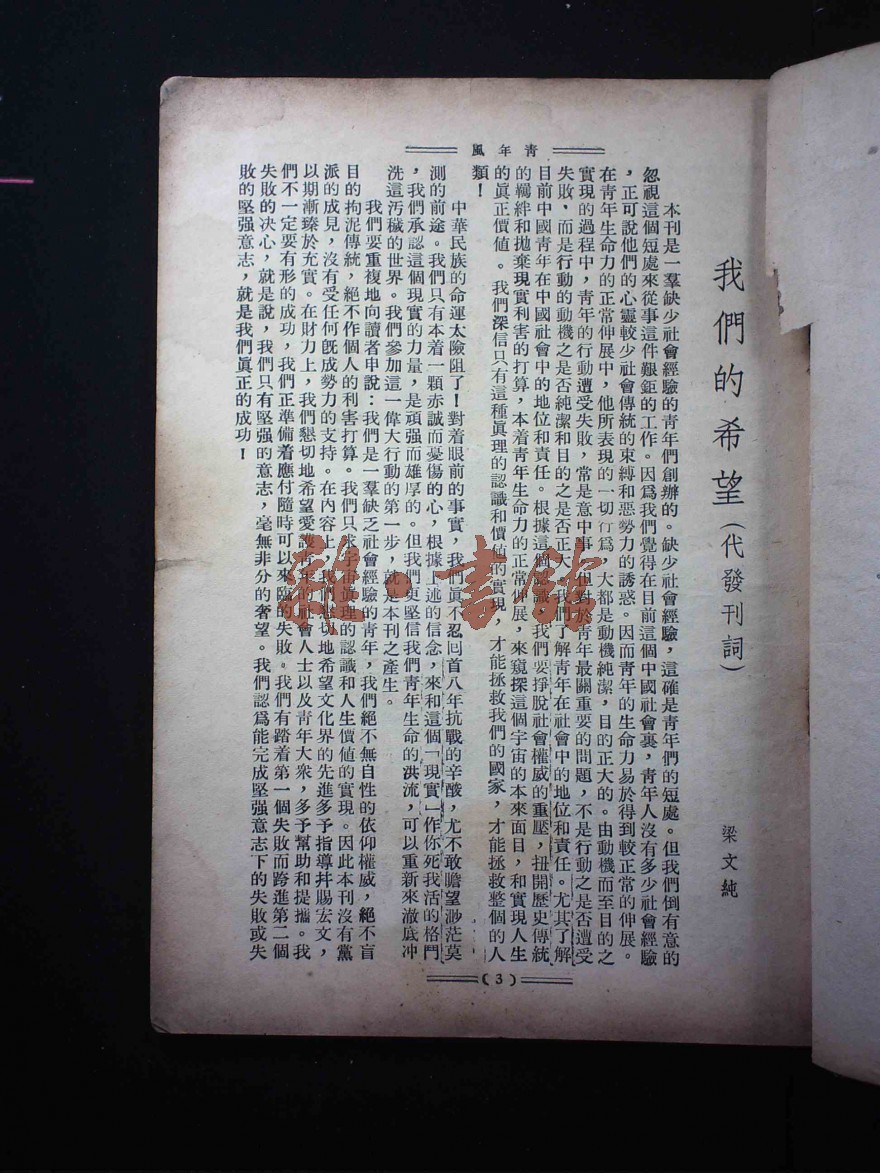 青年風
我們的希望(代發刊詞)
梁文純
本刊是一羣缺少社會經驗的青年們創辦的。缺少社會經驗,這確是青年們的短處。但我們倒有意的
忽視這個短處來從事這件艱鉅的工作。因爲我們覺得在目前這個中國社會裏,青年人沒有多少社會經驗
,正可說他們的心靈較少社會傳統的束縛和惡勢力的誘惑。因而青年的生命力易於得到較正常的伸展。
在青年生命力的正常伸展中,他所表現的一切行爲,大都是動機純潔,目的正大的。由動機而至目的之
實現的過程中,青年的行動遭受失敗,常是意中事。但對於青年最關重要的問題,不是行動之是否遭受
失敗,而是行動的動機之是否純潔和目的之是否正大。我們了解青年在社會中的地位和責任。尤其了解
目前中國青年在中國社會中的地位和責任。根據這個認識,我們要掙脫社會權威的重壓,扭開歷史傳統
的羈絆和拋棄現實利害的打算,本着青年生命力的正常伸展,來窺探這個宇宙的本來面目,和實現人生
的眞正價値。我們深信只有這種眞理的認識和價値的實現,才能拯救我們的國家,才能拯救整個的人
類!
中華民族的命運太險阻了!對着眼前的事實,我們眞不忍囘首八年抗戰的辛酸,尤不敢瞻望渺茫莫
測的前途。我們只有本着一顆赤誠而憂傷的心,根據上述的信念,來和這個「現實」作你死我活的格鬥
,我們承認這個現實的力量,是頑强而雄厚的。但我們更堅信我們青年生命的洪流,可以重新來澈底冲
洗這汚穢的世界。我們參加這一偉大行動的第一步,就是本刊之產生。
我們要重複地向讀者申說:我們是一羣缺乏社會經驗的青年,我們絕不無自性的依仰權威,絕不盲
目的拘泥傳統,絕不作個人的利害打算。我們只求宇宙眞理的認識和人生價値的實現。因此本刊沒有黨
派的成見,沒有受任何旣成勢力的支持。在內容上,我們懇切地希望文化界的先進多予指導幷賜宏文,
以期漸臻於充實。在財力上,我們懇切地希望愛護青年的社會人士以及青年大衆,多予幫助和提攜。我
們不一定要有形的成功,我們正準備着應付隨時可以來臨的失敗。我們有踏着第一個失敗而跨進第二個
失敗的决心,就是說,我們只有堅强的意志,毫無非分的奢望。我們認爲能完成堅强意志下的失敗或失
敗的堅强意志,就是我們眞正的成功!
(3)
雜·書館